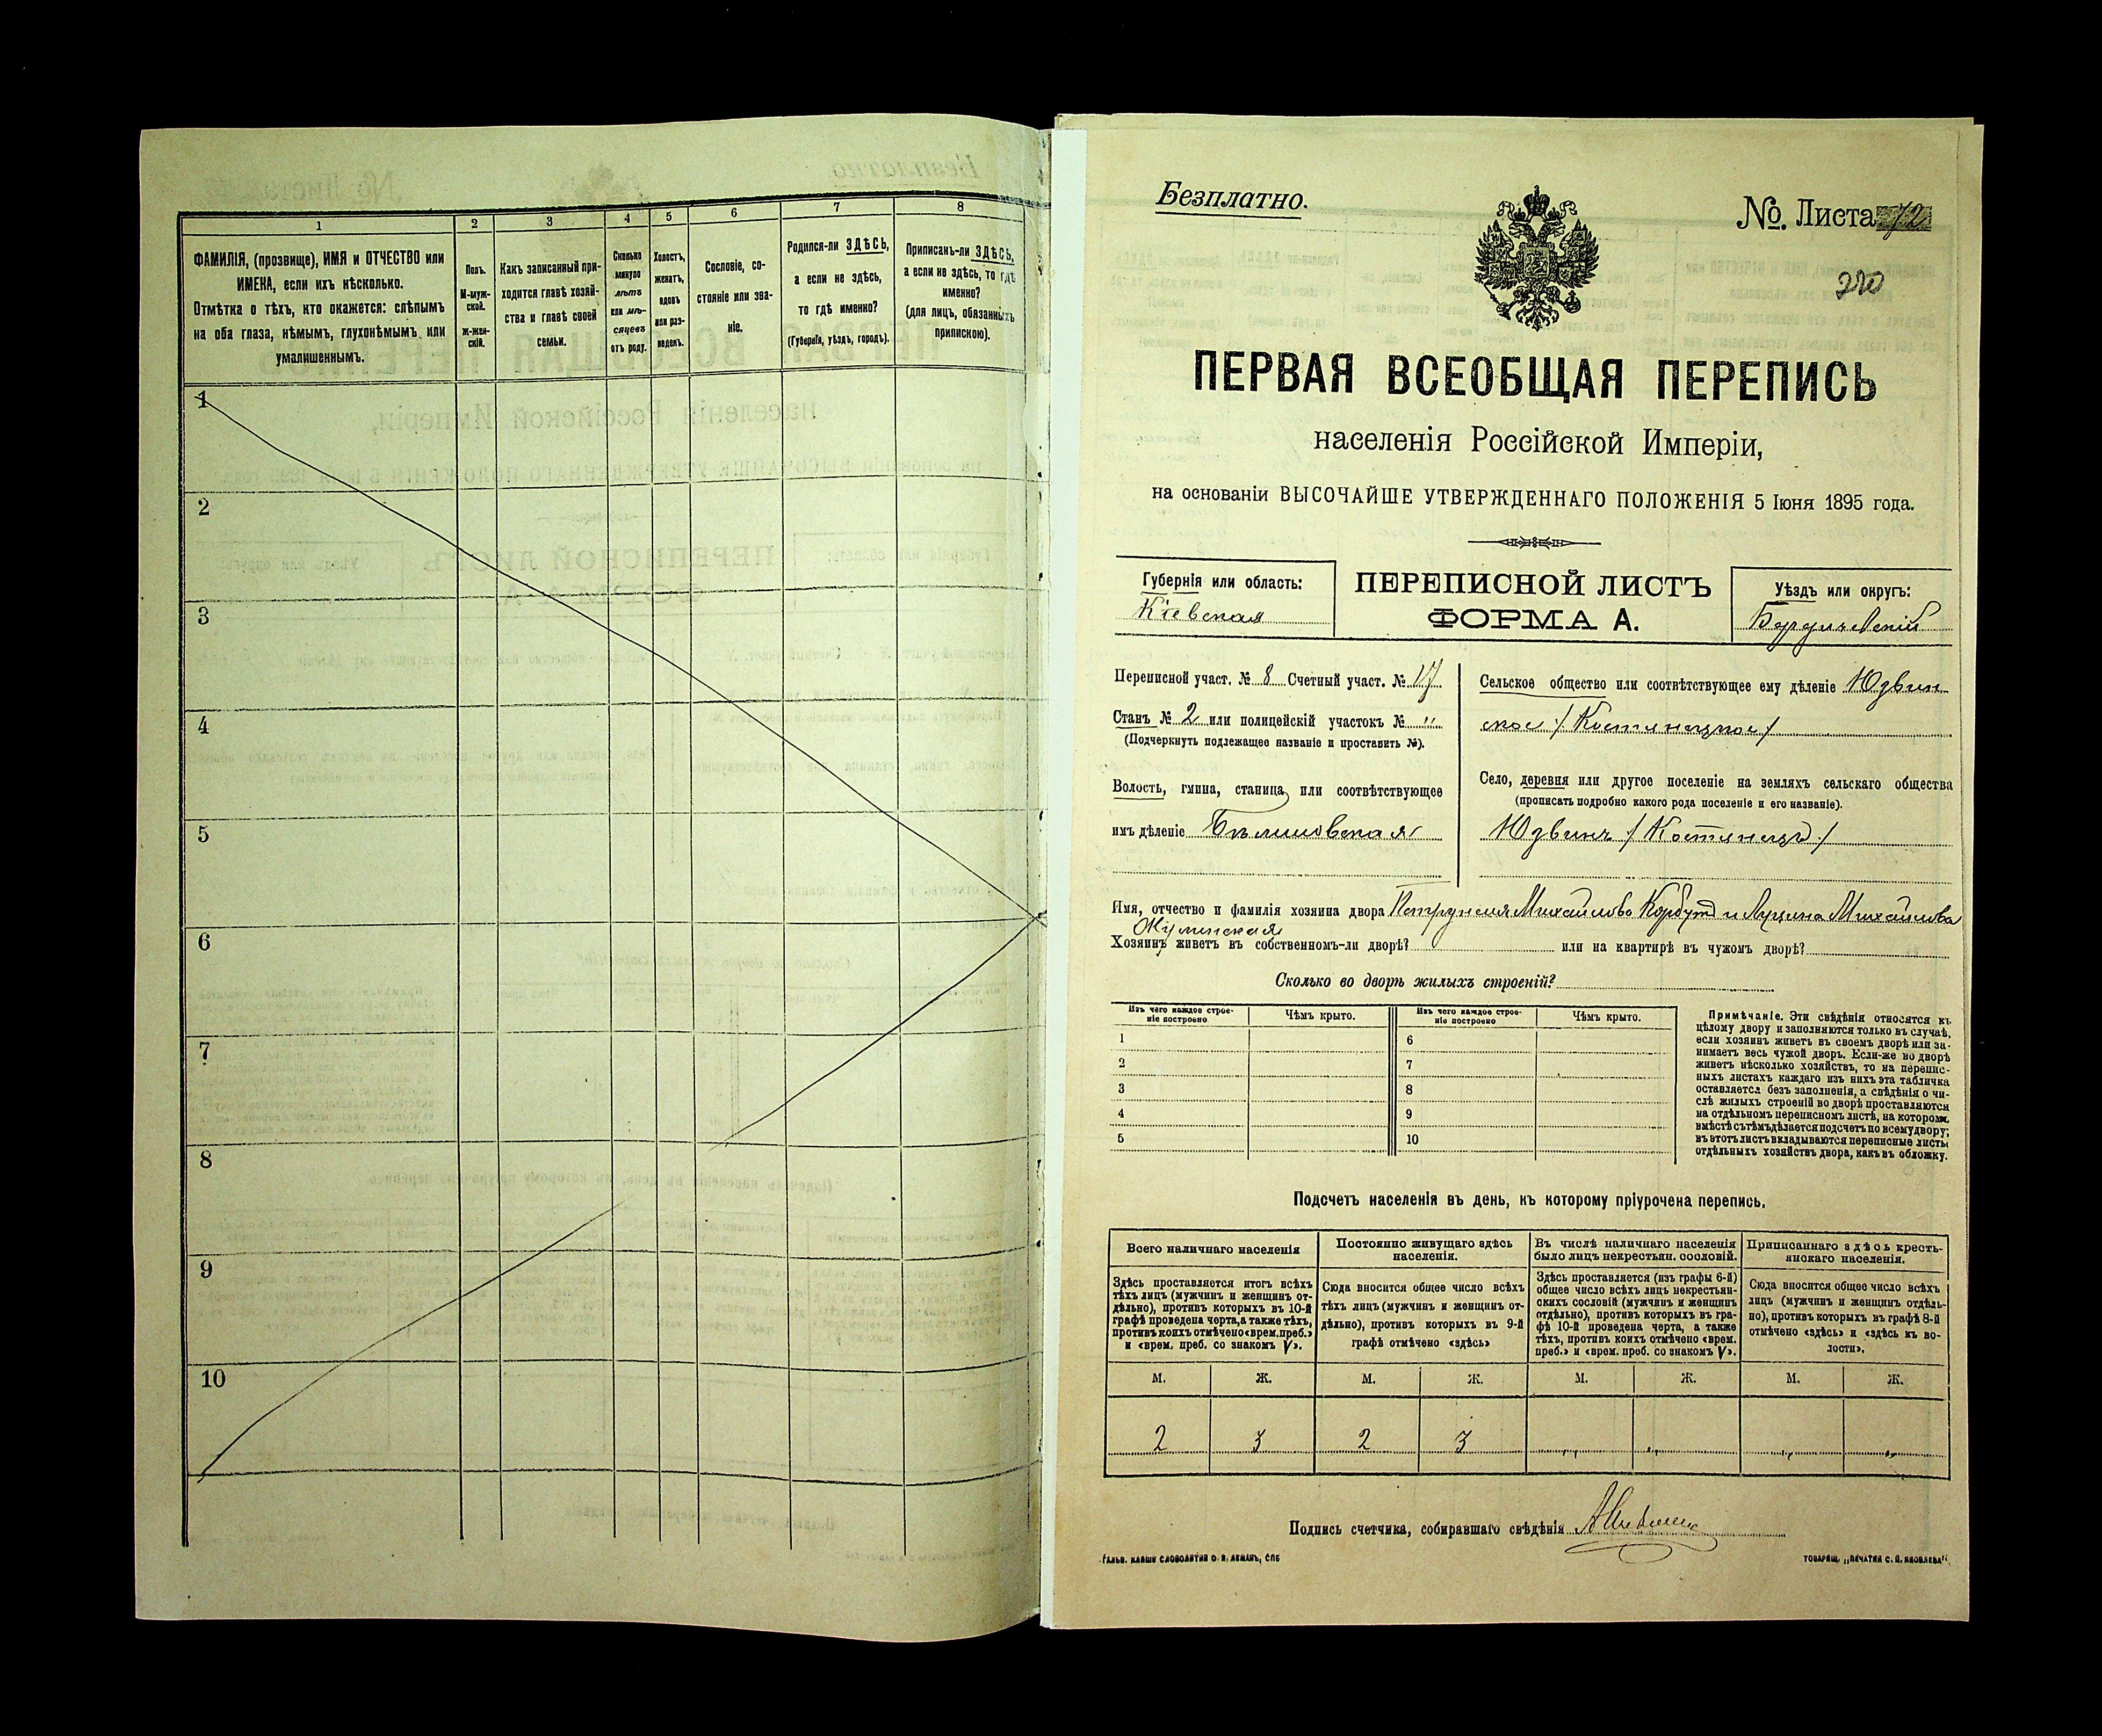 1
2
3
4
5
6
7
8
ФАМИЛІЯ, (прозвище), ИМЯ и ОТЧЕСТВО или
ИМЕНА, если ихъ нѣсколько.
Отмѣтка о тѣхъ, кто окажется: слѣпымъ
на оба глаза, нѣмымъ, глухонѣмымъ или
умалишеннымъ.
Полъ.
М-муж-
ской.
ж-жен-
скій.
Какъ записанный при-
ходится главѣ хозяй-
ства и главѣ своей
семьи.
Сколько
минуло
лѣтъ
или мѣ-
сяцевъ
отъ роду.
Холостъ,
женатъ,
вдовъ
или раз-
веденъ.
Сословіе, со-
стояніе или зва-
ніе.
Родился-ли ЗДѢСЬ,
а если не здѣсь,
то гдѣ именно?
(Губернія, уѣздъ, городъ).
Приписанъ-ли ЗДѢСЬ,
а если не здѣсь, то гдѣ
именно?
(для лицъ, обязанныхъ
припискою).
1
2
3
4
5
6
7
8
9
10
Безплатно.
№. Листа 72
ПЕРВАЯ ВСЕОБЩАЯ ПЕРЕПИСЬ
населенія Россійской Имперіи,
на основаніи ВЫСОЧАЙШЕ УТВЕРЖДЕННАГО ПОЛОЖЕНІЯ 5 Іюня 1895 года.
Губернія или область:
Кіевская
ПЕРЕПИСНОЙ ЛИСТЪ
ФОРМА А.
Уѣздъ или округъ:
Бердичевскій
Переписной участ. № 8 Счетный участ. № 17
Станъ № 2 или полицейскій участокъ № "
(Подчеркнуть подлежащее названіе и проставить №).
Волость, гмина, станица или соотвѣтствующее
имъ дѣленіе Бѣлиловская
Сельское общество или соотвѣтствующее ему дѣленіе Юдвин
ское /Костянецкое/
Село, деревня или другое поселеніе на земляхъ сельскаго общества
(прописать подробно какого рода поселеніе и его названіе).
Юдвинъ /Костянецъ/
Имя, отчество и фамилія хозяина двора Петрунеля Михайлова Корбутъ и Луцина Михайлова
Хозяинъ живетъ въ собственномъ-ли дворѣ? или на квартирѣ въ чужомъ дворѣ?
Сколько во дворѣ жилыхъ строеній?
Изъ чего каждое строе-
ніе построено
Чѣмъ крыто.
Изъ чего каждое строе-
ніе построено
Чѣмъ крыто.
1
2
3
4
5
6
7
8
9
10
Примѣчаніе. Эти свѣдѣнія относятся къ
цѣлому двору и заполняются только въ случаѣ,
если хозяинъ живетъ въ своемъ дворѣ или за-
нимаетъ весь чужой дворъ. Если-же во дворѣ
живетъ нѣсколько хозяйствъ, то на перепис-
ныхъ листахъ каждаго изъ нихъ эта табличка
оставляется безъ заполненія, а свѣдѣнія о чи-
слѣ жилыхъ строеній во дворѣ проставляются
на отдѣльномъ переписномъ листѣ, на которомъ
вмѣстѣ съ тѣмъ дѣлается подсчетъ по всему двору;
въ этотъ листъ вкладываются переписные листы
отдѣльныхъ хозяйствъ двора, какъ въ обложку.
Подсчетъ населенія въ день, къ которому пріурочена перепись.
Всего наличнаго населенія
Постоянно живущаго здѣсь
населенія.
Въ числѣ наличнаго населенія
было лицъ некрестьян. сословій.
Приписаннаго здѣсь кресть-
янскаго населенія.
Здѣсь проставляется итогъ всѣхъ
тѣхъ лицъ (мужчинъ и женщинъ от-
дѣльно), противъ которыхъ въ 10-й
графѣ проведена черта, а также тѣхъ,
противъ коихъ отмѣчено «врем. преб.»
и «врем. преб. со знакомъ V».
Сюда вносится общее число всѣхъ
тѣхъ лицъ (мужчинъ и женщинъ от-
дѣльно), противъ которыхъ въ 9-й
графѣ отмѣчено «здѣсь»
Здѣсь проставляется (изъ графы 6-й)
общее число всѣхъ лицъ некрестьян-
скихъ сословій (мужчинъ и женщинъ
отдѣльно), противъ которыхъ въ гра-
фѣ 10-й проведена черта, а также
тѣхъ, противъ коихъ отмѣчено «врем.
преб.» и «врем. преб. со знакомъ V».
Сюда вносится общее число всѣхъ
лицъ (мужчинъ и женщинъ отдѣль-
но), противъ которыхъ въ графѣ 8-й
отмѣчено «здѣсь» и «здѣсь къ во-
лости».
М. Ж. М. Ж. М. Ж. М. Ж.
2 3 2 3 " " " "
Подпись счетчика, собиравшаго свѣдѣнія
ТОВАРИЩ. „ПЕЧАТНЯ С. П. ЯКОВЛЕВА".